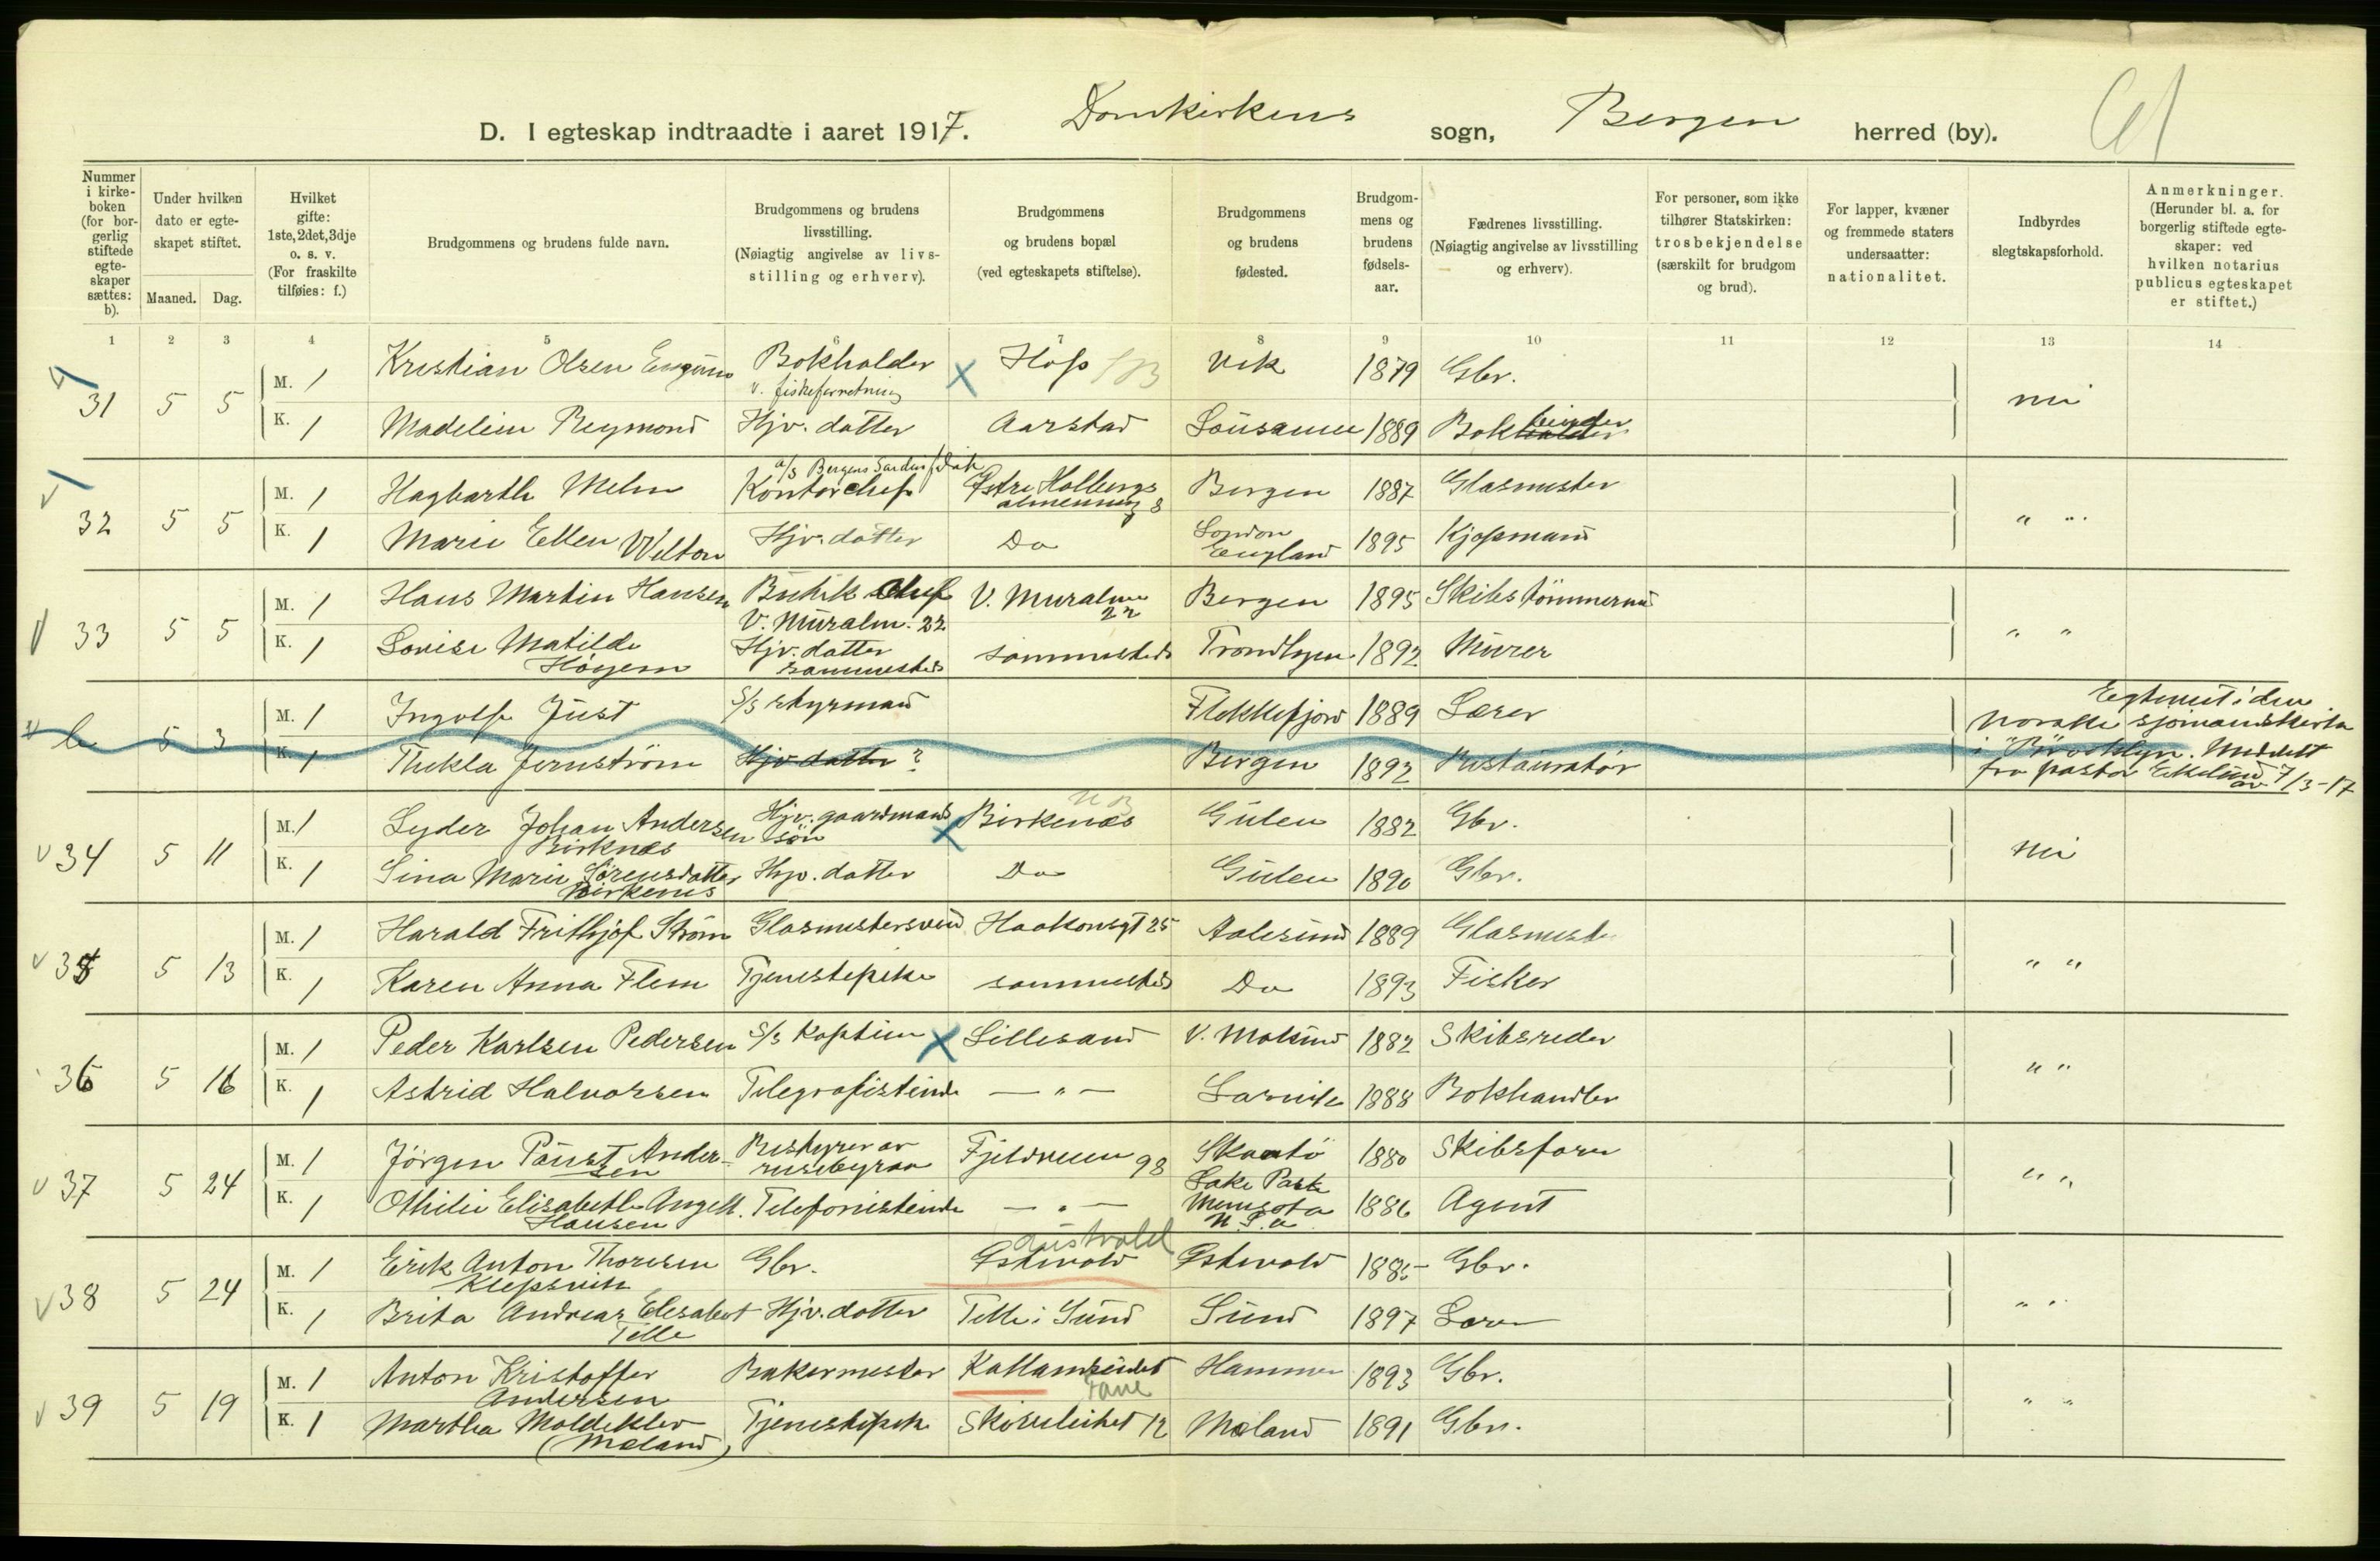 D. I egteskap indtraadte i aaret 1917. Domkirkens sogn, Bergen herred (by). 61
Nummer i kirke-boken (for bor-gerlig stiftede egte-skaper sættes: b).
Under hvilken dato er egte-skapet stiftet.
Maaned. Dag.
Hvilket gifte: 1ste, 2det, 3dje o. s. v. (For fraskilte tilføies: f.)
Brudgommens og brudens fulde navn.
Brudgommens og brudens livsstilling. (Nøiagtig angivelse av livs-stilling og erhverv).
Brudgommens og brudens bopæl (ved egteskapets stiftelse).
Brudgommens og brudens fødested.
Brudgom-mens og brudens fødsels-aar.
Fædrenes livsstilling. (Nøiagtig angivelse av livsstilling og erhverv).
For personer, som ikke tilhører Statskirken: trosbekjendelse (særskilt for brudgom og brud).
For lapper, kvæner og fremmede staters undersaatter: nationalitet.
Indbyrdes slegtskapsforhold.
Anmerkninger. (Herunder bl. a. for borgerlig stiftede egte-skaper: ved hvilken notarius publicus egteskapet er stiftet.)
1 2 3 4 5 6 7 8 9 10 11 12 13 14
31 5 5 M. 1 Kristian Olsen Bokholder v. fiskeforretning Hop Vik 1879 Gbr. nei
K. 1 Madelein Reymond Hjv. datter Aarstad Lousanne 1889 Bokholder binder
32 5 5 M. 1 Hagbarth Mehn Kontorchef a/s Bergens Sardin fabr Østre Holbergs almenning 8 Bergen 1887 Glasmester " "
K. 1 Marie Ellen Welton Hjv. datter Do London England 1895 Kjøpmand
33 5 5 M. 1 Hans Martin Hansen Butik chef V. Muralm. 22 V. Muralm 22 Bergen 1895 Skibstömmermd " "
K. 1 Lovise Matilde Höyem Hjv. datter sammesteds sammesteds Trondhjem 1892 Murer
b 5 3 M. 1 Ingolf Just S/S styrmand Flekkefjord 1889 Lærer
K. 1 Thekla Jernström Hjv datter ? Bergen 1892 Restauratör
Egteviet i den norske sjömandskirke i Brooklyn. Meddelt fra pastor Ekelund av 7/3-17
34 5 11 M. 1 Lyder Johan Andersen Birknes Hjv. gaardmands sön Birkenes Gulen 1882 Gbr. nei
K. 1 Sina Marie Sörensdatter Birkenes Hjv. datter Do Gulen 1890 Gbr.
35 5 13 M. 1 Harald Frithjof Ström Glasmestersvend Haakonsgt 25 Aalesund 1889 Glasmester " "
K. 1 Karen Anna Flem Tjenestepike sammesteds Do 1893 Fisker
36 5 16 M. 1 Peder Karlsen Pedersen S/S Kaptein Lillesand V. Moland 1882 Skibsreder " "
K. 1 Astrid Halvorsen Telegrafistinde — " — Larvik 1888 Bokhandler
37 5 24 M. 1 Jörgen Paust Andersen Bestyrer av reisebyraa Fjeldveien 98 Skaatö 1880 Skibsförer " "
K. 1 Othilie Elisabeth Angell Hansen Telefonistinde — " — Lake Park Menesota U. S. a 1886 Agent
38 5 24 M. 1 Erik Anton Thoresen Klepsvik Gbr. Østevold Austvold Østevold 1885 Gbr. " "
K. 1 Brita Andrea Elesabet Telle Hjv. datter Telle i Sund Sund 1897 Lærer
39 5 19 M. 1 Anton Kristoffer Andersen Bakermester Kallandseidet Fane Hammer 1893 Gbr. " "
K. 1 Martha Moldeklev (Mæland) Tjenestepike Skiveleiket 12 Mæland 1891 Gbr.